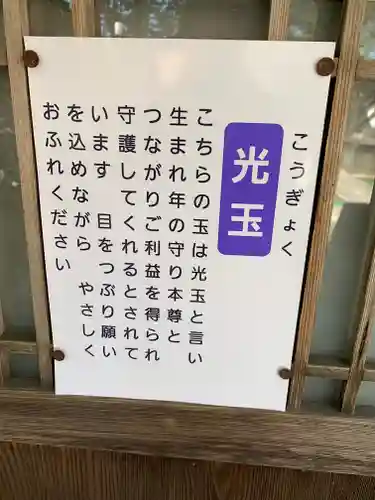 こうぎょく
光玉
こちらの玉は光玉と言い
生まれ年の守り本尊と
つながりご利益を得られ
守護してくれるとされて
います　目をつぶり願い
を込めながら　やさしく
おふれください